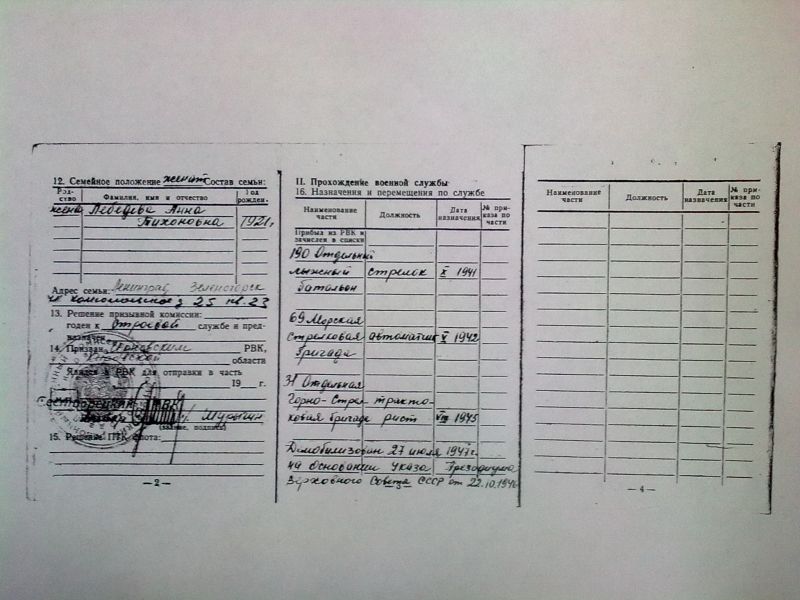 12. Семейное положение женат Состав семьи:
Родство
Фамилия, имя и отчество
Год рожден.
жена Лебедева Анна
Тихоновна 1921г
Адрес семьи: Ленинград Зеленогорск
25 кв. 23
13. Решение призывной комиссии:
годен к строевой службе и предназначен
14. Призван РВК,
области
Явился в РВК для отправки в часть
19 г.
(звание, подпись)
15. Решение ПТК флота:
— 2 —
II. Прохождение военной службы
16. Назначения и перемещения по службе
Наименование части
Должность
Дата назначения
№ приказа по части
Прибыл из РВК и зачислен в списки
190 Отдельный
лыжный стрелок X 1941
батальон
69 Морская
стрелковая автоматчик V 1942
бригада
31 Отдельная
Горно-Стрел тракто-
ковая бригада рист VIII 1945
Демобилизован 27 июля 1947г.
на основании Указа Президиума
Верховного Совета СССР от 22.10.1946
Наименование части
Должность
Дата назначения
№ приказа по части
— 4 —